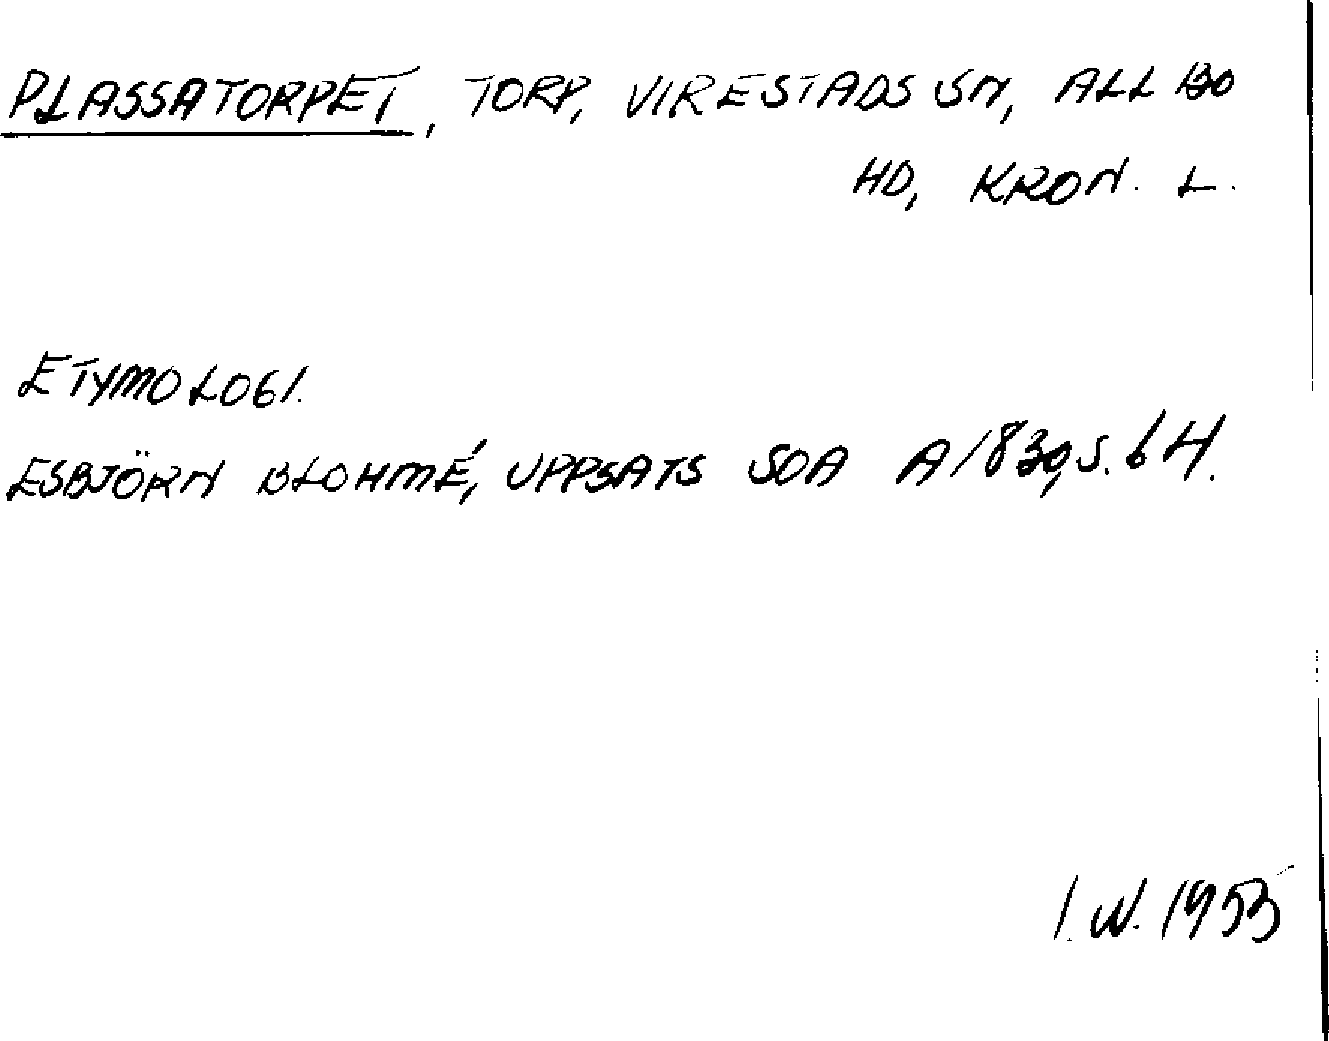 PLASSATORPET, TORP, VIRESTADS SN, ALLBO
HD, KRON. L.
ETYMOLOGI.
ESBJÖRN BLOHMÉ, UPPSATS SOA A1839, S. 64.
I.W. 1955